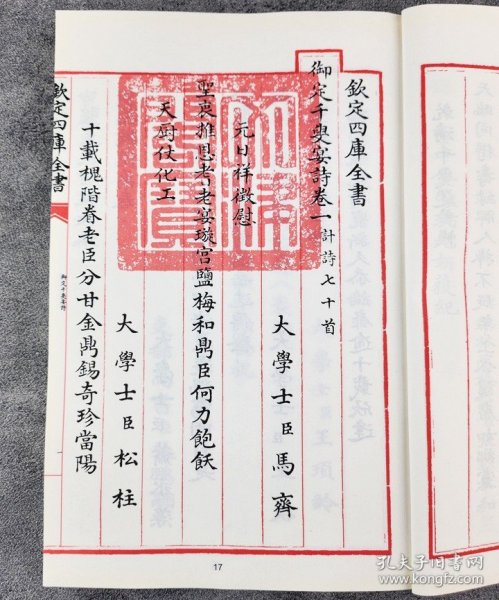 欽定四庫全書
御定千叟宴詩卷一 計詩七十首
大學士臣馬齊
元日祥徵慰
聖衷推恩考老宴璇宮鹽梅和鼎臣何力飽飫
天廚仗化工
大學士臣松柱
十載槐階眷老臣分甘金鼎錫奇珍當陽
欽定四庫全書
御定千叟宴詩
文淵閣寶
17
孔夫子旧书网
www.kongfz.com